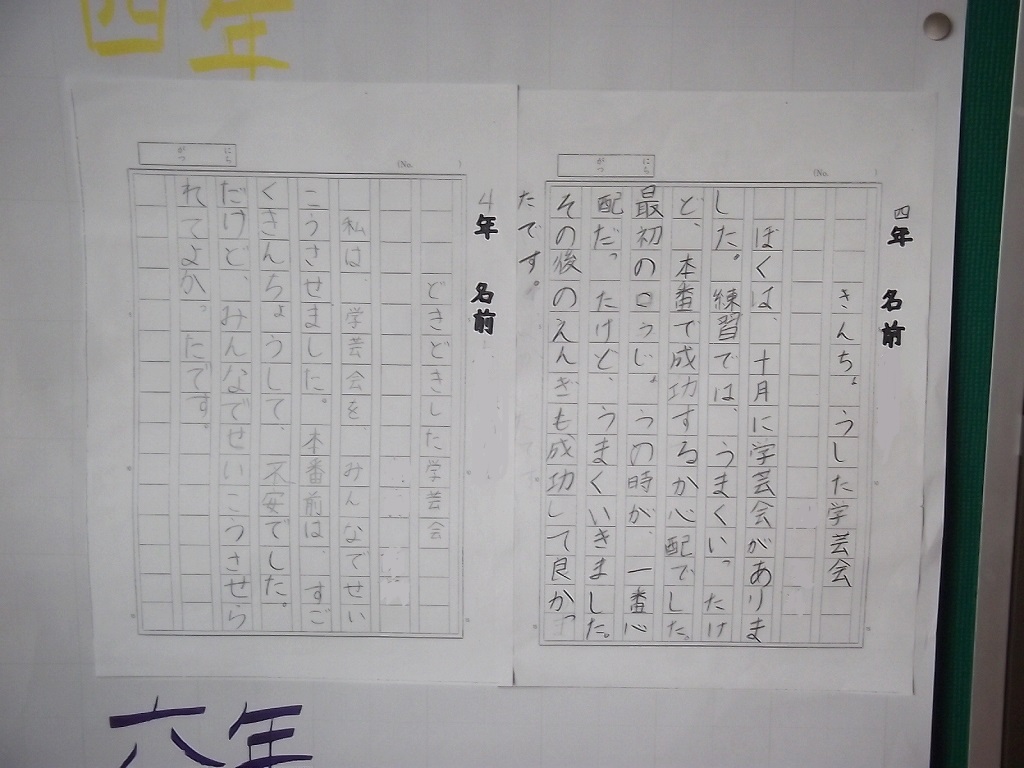 四年
にち
がつ
(No. )
四年 名前
きんちょうした学芸会
ぼくは、十月に学芸会がありま
した。練習では、うまくいったけ
ど、本番で成功するか心配でした。
最初の口うじょうの時が、一番心
配だったけど、うまくいきました。
その後のえんぎも成功して良かっ
たです。
にち
がつ
(No. )
4年 名前
どきどきした学芸会
私は、学芸会を、みんなでせい
こうさせました。本番前は、すご
くきんちょうして、不安でした。
だけど、みんなでせいこうさせら
れてよかったです。
六年